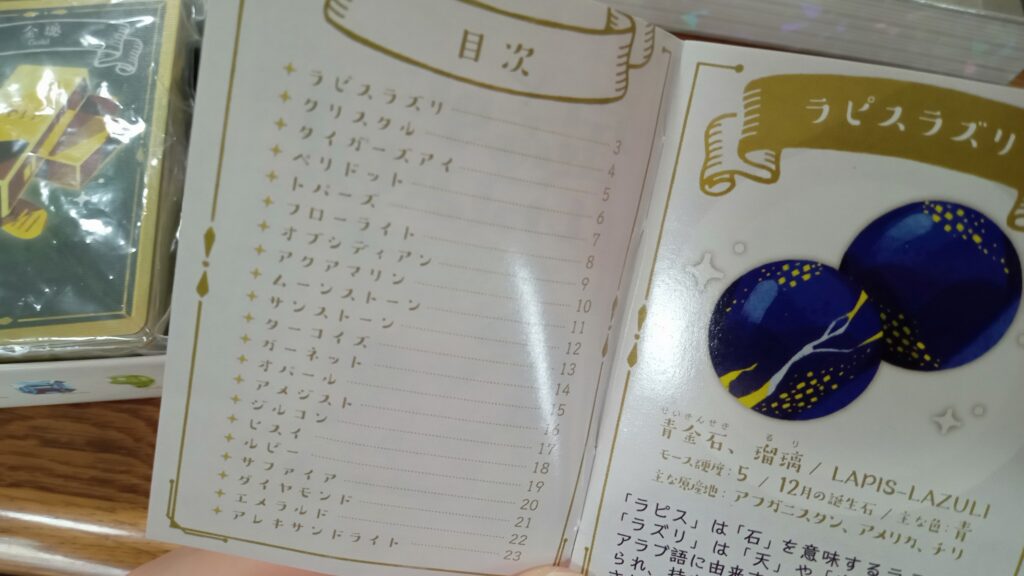 目次
ラピスラズリ 3
クリスタル 4
タイガーズアイ 5
ペリドット 6
トパーズ 7
フローライト 8
オブシディアン 9
アクアマリン 10
ムーンストーン 11
サンストーン 12
ターコイズ 13
ガーネット 14
オパール 15
アメジスト 16
ジルコン 17
ヒスイ 18
ルビー 19
サファイア 20
ダイヤモンド 21
エメラルド 22
アレキサンドライト 23
ラピスラズリ
せいきんせき るり
青金石、瑠璃 / LAPIS-LAZULI
モース硬度：5 / 12月の誕生石 / 主な色：青
主な原産地：アフガニスタン、アメリカ、チリ
「ラピス」は「石」を意味するラ
「ラズリ」は「天」や「
アラブ語に由来す
られ、